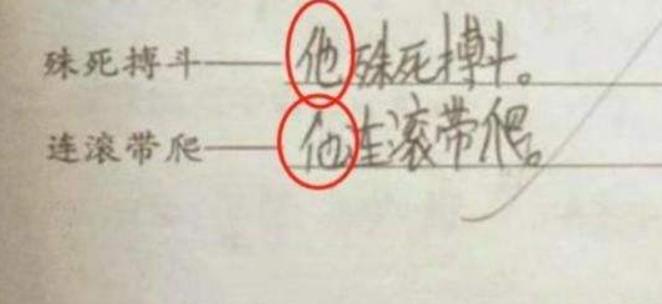 殊死搏斗——他殊死搏斗。
连滚带爬——他连滚带爬。